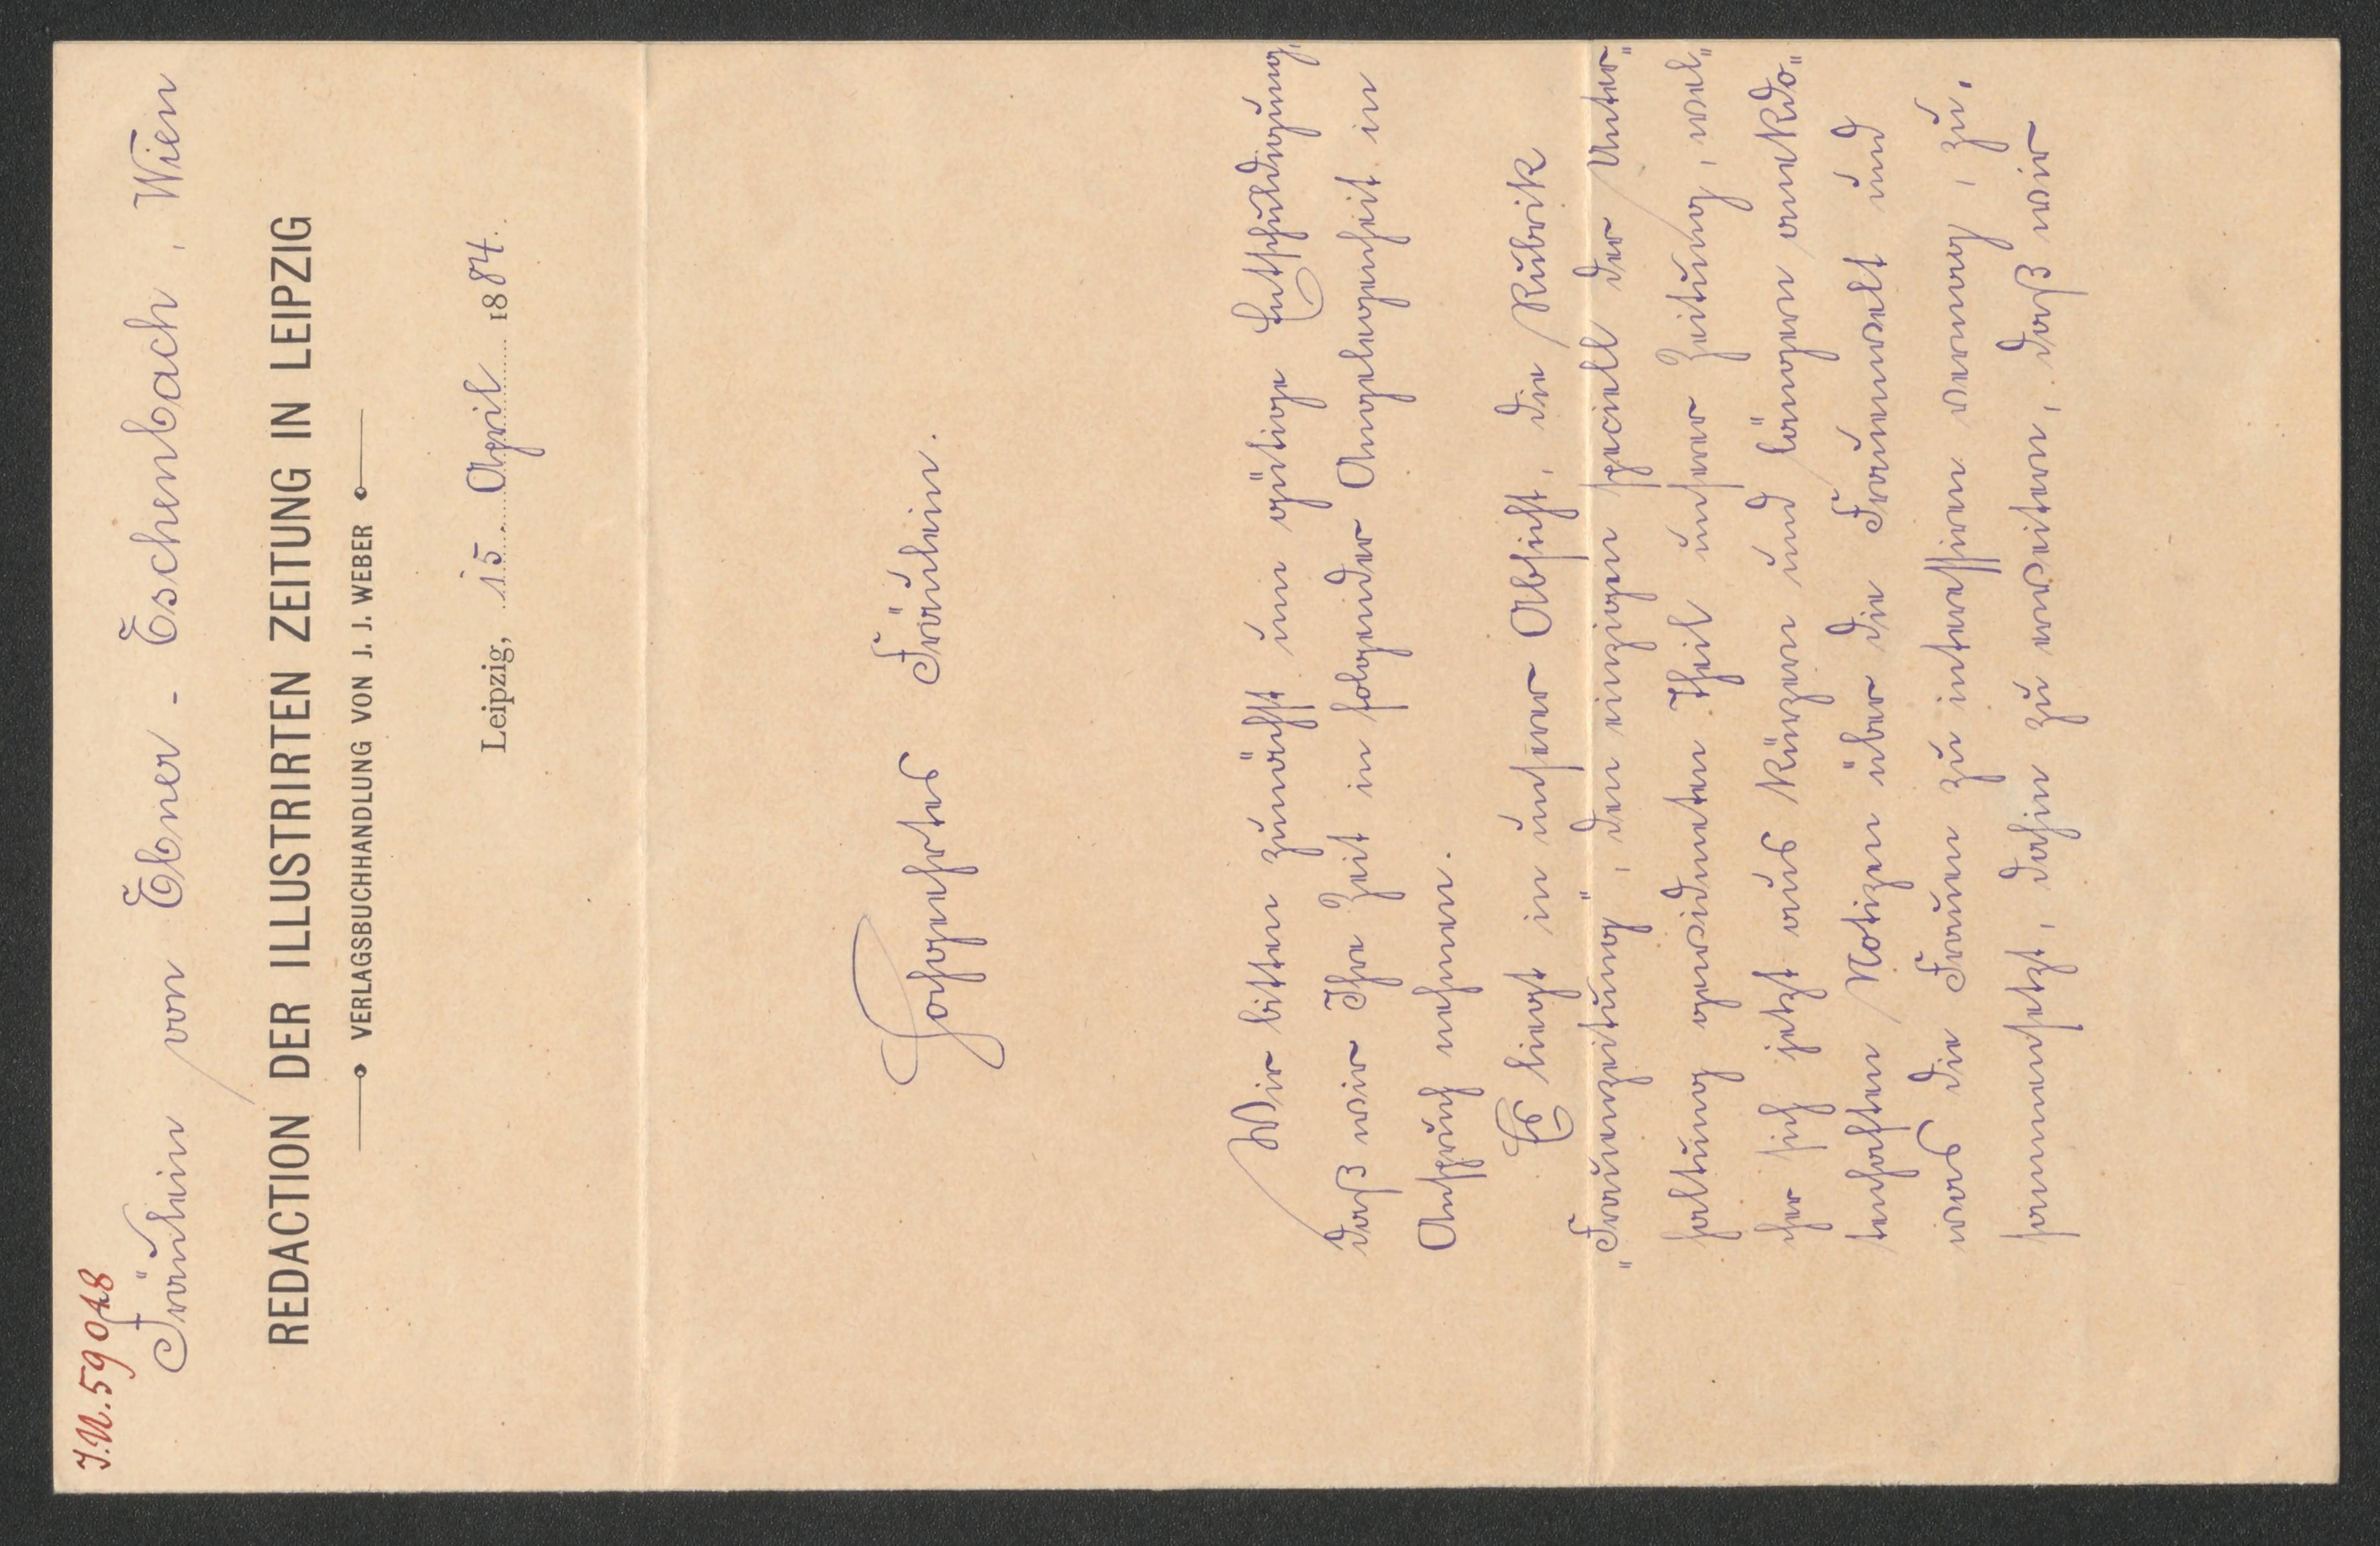 J.N. 59048
Fräulein von Ebner - Eschenbach, Wien
REDACTION DER ILLUSTRIRTEN ZEITUNG IN LEIPZIG
VERLAGSBUCHHANDLUNG VON J. J. WEBER
Leipzig, 15. April 1884.
Hochgeehrtes Fräulein.
Wir bitten zunächst um gütige Entschuldigung,
daß wir Ihre Zeit in folgender Angelegenheit in
Anspruch nehmen.
Es liegt in unserer Absicht, die Rubrik
"Frauenzeitung", den einzigen speciell der Unter„
haltung gewidmeten Theil unserer Zeitung, wel„
cher sich jetzt aus kürzern und längern anekdo„
tenhaften Notizen über die Frauenwelt und
was die Frauen zu interessiren vermag, zu„
sammensetzt, dahin zu erweitern, daß wir